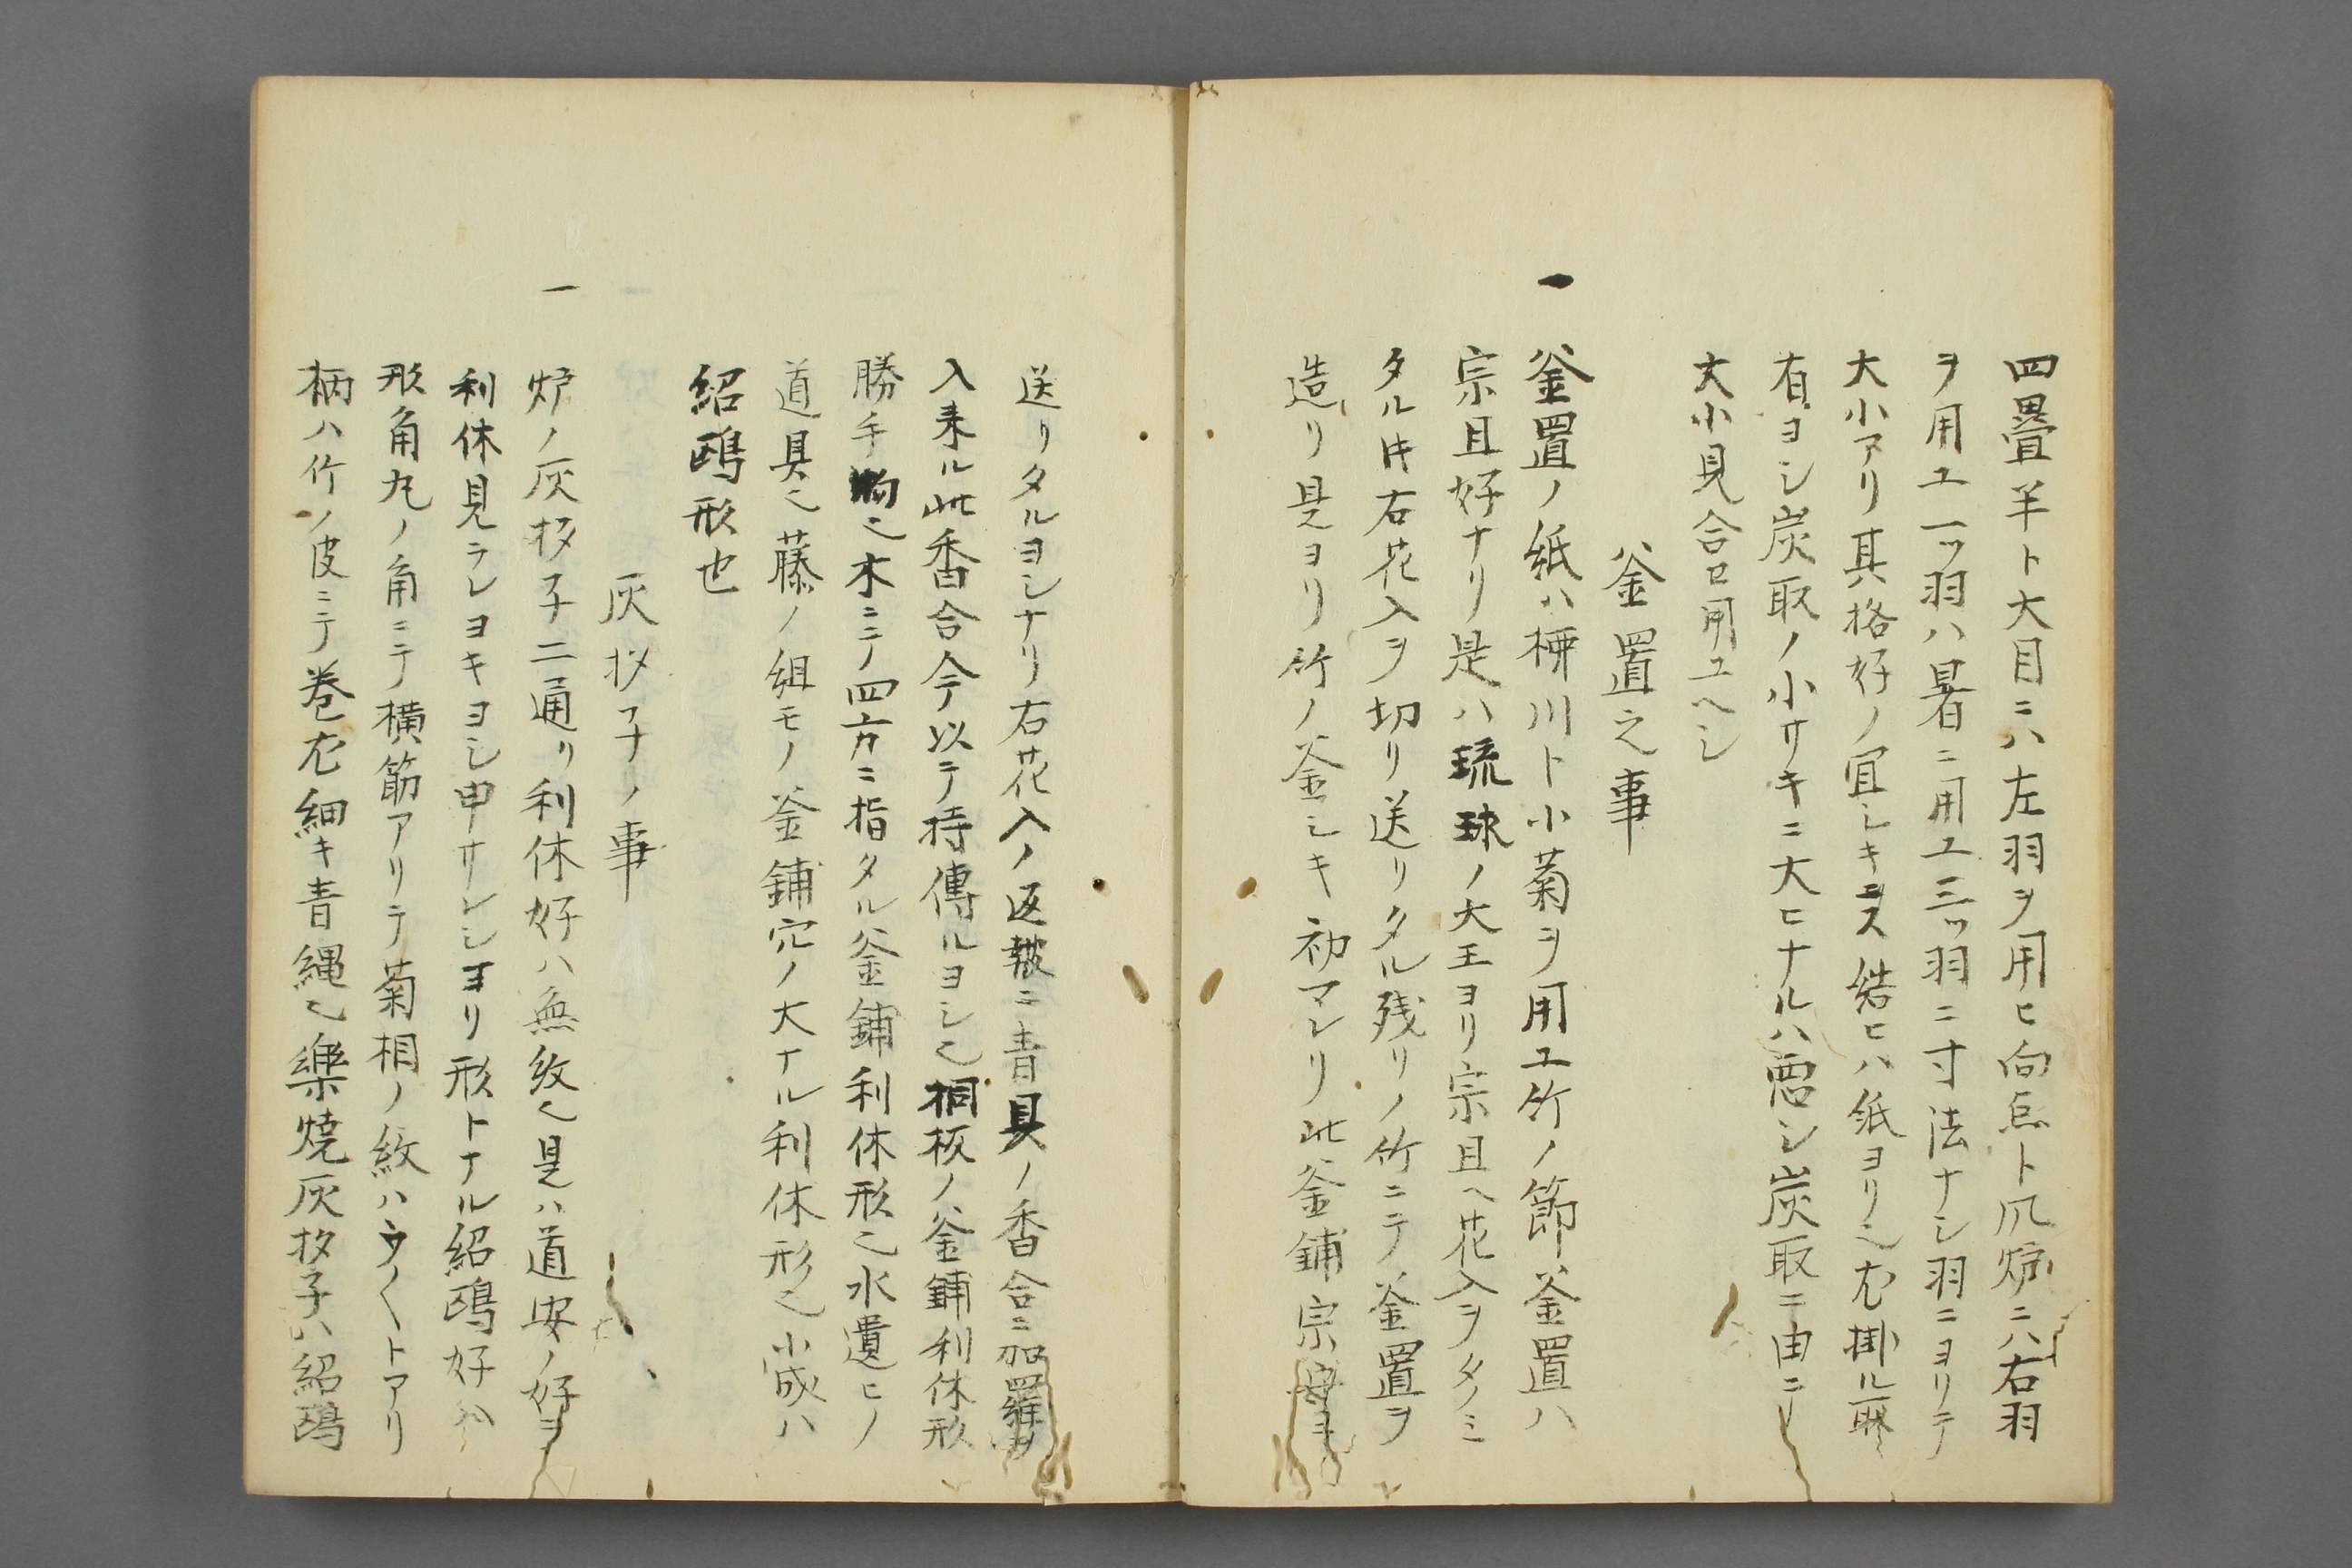 四畳半ト大目ニハ左羽ヲ用ヒ向点ト风炉ニハ右羽
ヲ用ユ一ッ羽ハ暑ニ用ユ三ッ羽ニ寸法ナシ羽ニヨリテ
大小アリ其格好ノ宜シキニス結ヒハ紙ヨリ也尤掛ル
有ヨシ炭取ノ小サキニ大ヒナルハ悪シ炭取ニ由ニ
大小見合セ用ユヘシ
釜置之事
一 釜置ノ紙ハ柳川ト小菊ヲ用ユ竹ノ節釜置ハ
宗旦好ナリ是ハ琉球ノ大王ヨリ宗旦ヘ花入ヲタノミ
タル𪜈右花入ヲ切リ送リタル残リノ竹ニテ釜置ヲ
造リ是ヨリ竹ノ釜シキ初マレリ此釜鋪宗
送リタルヨシナリ右花入ノ返報ニ青具ノ香合ニ
入来ル此香合今以テ持傳ルヨシ也桐板ノ釜鋪利休形
勝手物也木ニテ四方ニ指タル釜鋪利休形也水遣ヒノ
道具也藤ノ組モノ釜鋪穴ノ大ナル利休形也小成ハ
紹鴎形也
灰抄子ノ事
一 炉ノ灰抄子二通リ利休好ハ無紋也是ハ道安ノ好ヲ
利休見ラレヨキヨシ申サレシヨリ形トナル紹鴎好ハ
形角丸ノ角ニテ横筋アリテ菊桐ノ紋ハウ〱トアリ
柄ハ竹ノ皮ニテ巻尤細キ青縄也樂焼灰抄子ハ紹鴎